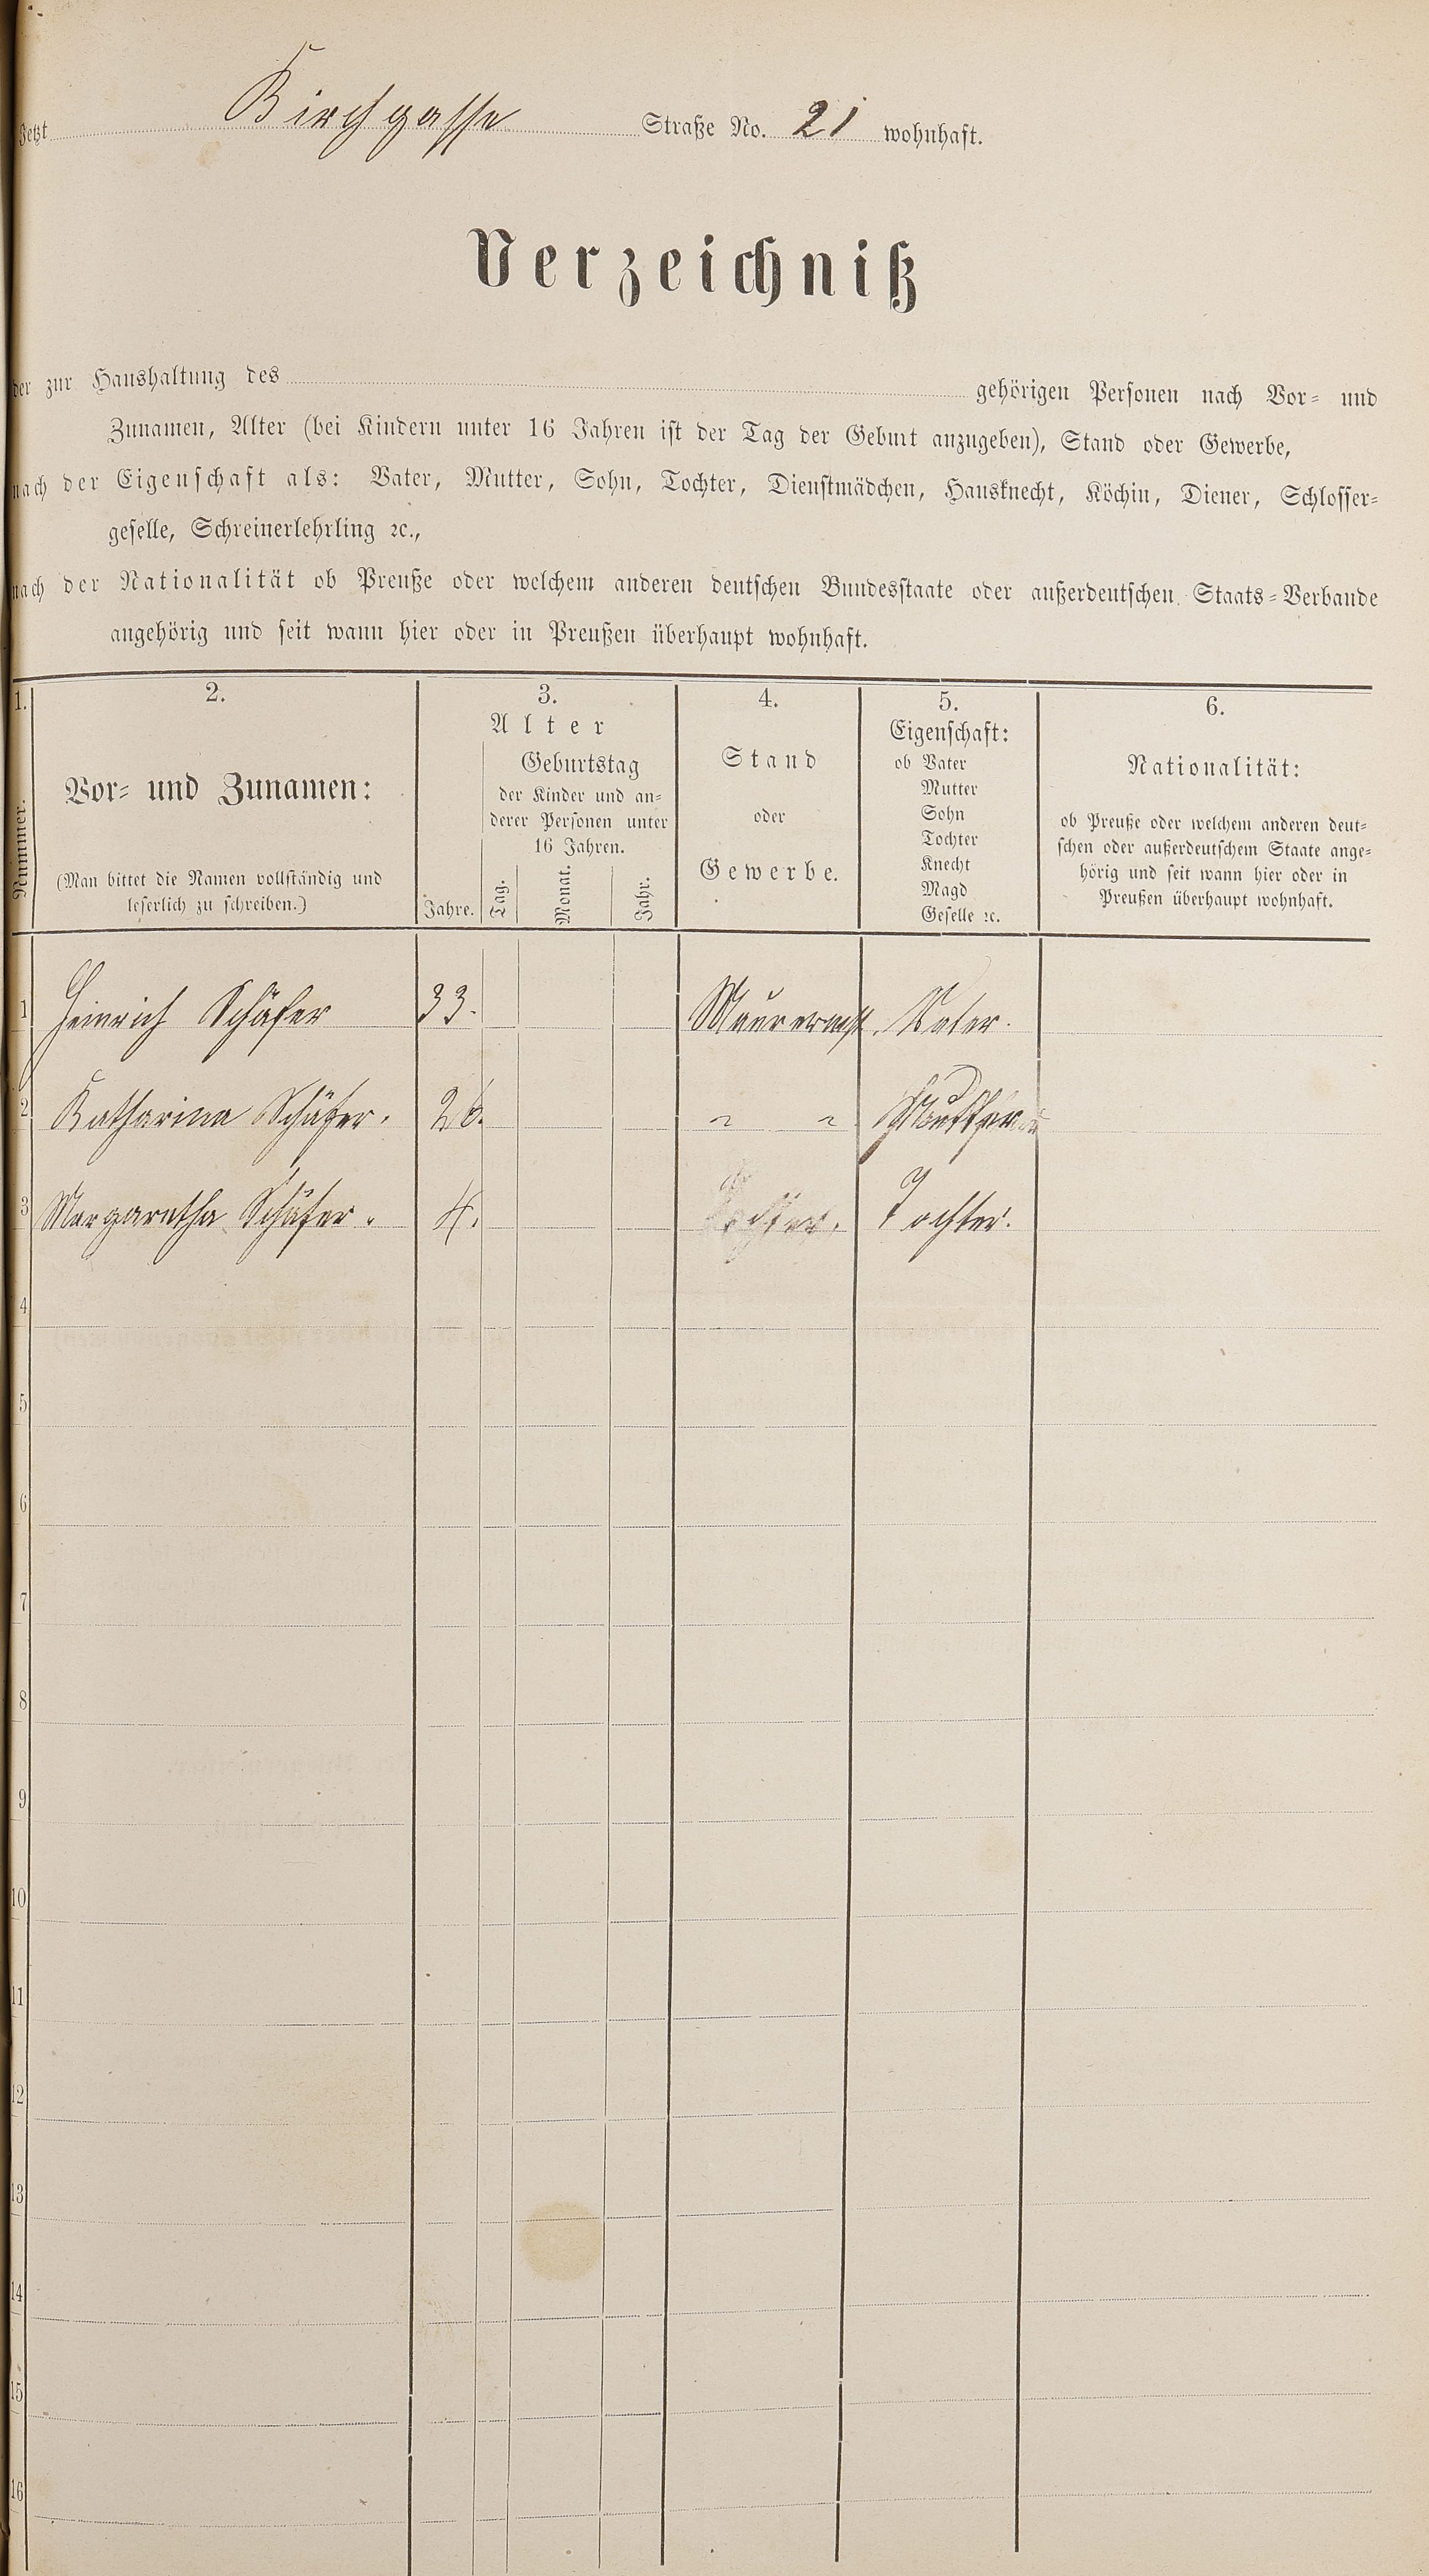 Jetzt Kirchgasse Straße No. 21 wohnhaft.
Verzeichniß
der zur Haushaltung des gehörigen Personen nach Vor- und
Zunamen, Alter (bei Kindern unter 16 Jahren ist der Tag der Geburt anzugeben), Stand oder Gewerbe,
nach der Eigenschaft als: Vater, Mutter, Sohn, Tochter, Dienstmädchen, Hausknecht, Köchin, Diener, Schlosser-
geselle, Schreinerlehrling ꝛc.,
nach der Nationalität ob Preuße oder welchem anderen deutschen Bundesstaate oder außerdeutschen Staats-Verbande
angehörig und seit wann hier oder in Preußen überhaupt wohnhaft.
1.
Nummer.
2.
Vor- und Zunamen:
(Man bittet die Namen vollständig und
leserlich zu schreiben.)
3.
Alter
Jahre.
Geburtstag
der Kinder und an-
derer Personen unter
16 Jahren.
Tag.
Monat.
Jahr.
4.
Stand
oder
Gewerbe.
5.
Eigenschaft:
ob Vater
Mutter
Sohn
Tochter
Knecht
Magd
Geselle ꝛc.
6.
Nationalität:
ob Preuße oder welchem anderen deut-
schen oder außerdeutschem Staate ange-
hörig und seit wann hier oder in
Preußen überhaupt wohnhaft.
1 Heinrich Schäfer 33. Vater.
2 Katharina Schäfer. 26. " " Mutter
3 Margaretha Schäfer. 4. Tochter. Tochter.
4
5
6
7
8
9
10
11
12
13
14
15
16